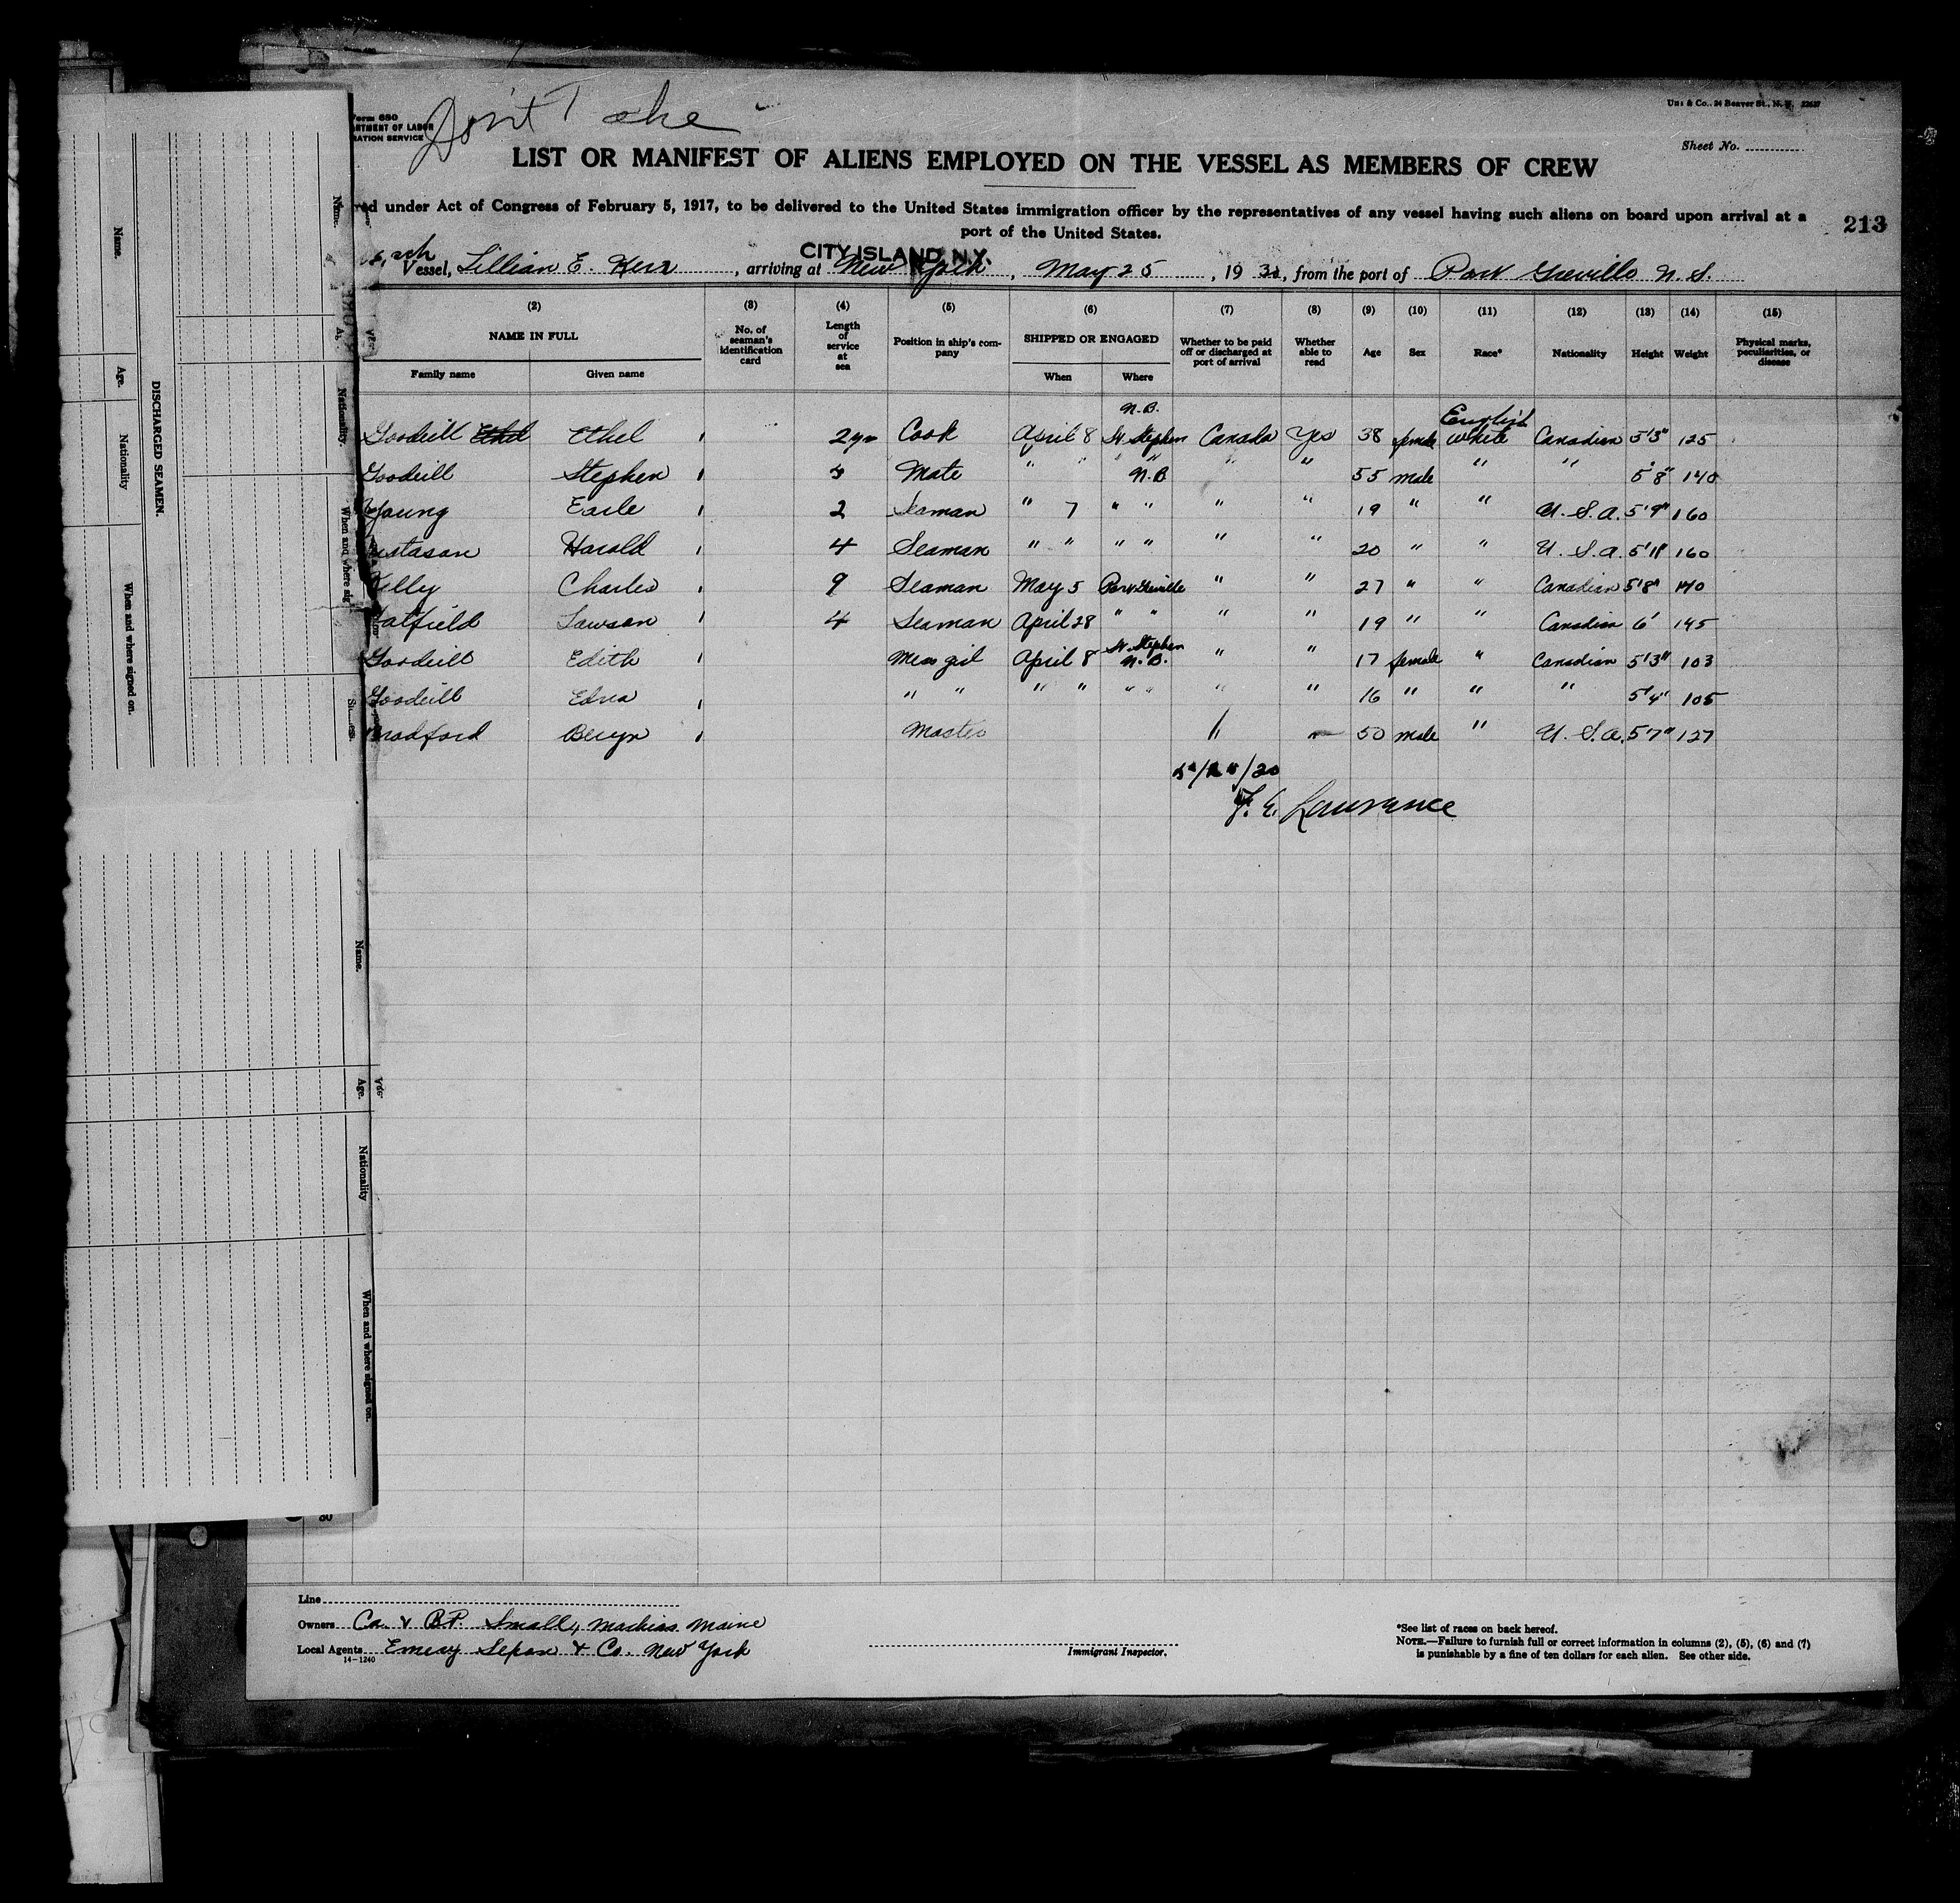 Don't Take
Form 680
ARTMENT OF LABOR
RATION SERVICE
24 Beaver St., N.Y.
Sheet No.
LIST OR MANIFEST OF ALIENS EMPLOYED ON THE VESSEL AS MEMBERS OF CREW
red under Act of Congress of February 5, 1917, to be delivered to the United States immigration officer by the representatives of any vessel having such aliens on board upon arrival at a
port of the United States.
213
CITY ISLAND, N.Y.
Vessel, Lillian E. Kerr, arriving at New York, May 25, 1930, from the port of Port Greville N.S.
(2) (3) (4) (5) (6) (7) (8) (9) (10) (11) (12) (13) (14) (15)
NAME IN FULL No. of seaman's identification card Length of service at sea Position in ship's company SHIPPED OR ENGAGED Whether to be paid off or discharged at port of arrival Whether able to read Age Sex Race* Nationality Height Weight Physical marks, peculiarities, or disease
Family name Given name When Where
N.B. English
Ethel Ethel 1 2 yrs Cook April 8 St. Stephen Canada Yes 38 female White Canadian 5'3" 125
Stephen 1 Mate " " " " N.B. " " 55 male " " 5'8" 140
Young Earle 1 2 Seaman " 7 " " " " 19 " " U.S.A. 5'9" 160
Harold 1 4 Seaman " " " " " " 20 " " U.S.A. 5'11" 160
Kelly Charles 1 9 Seaman May 5 Port Greville " " 27 " " Canadian 5'8" 140
Hatfield Lawson 1 4 Seaman April 28 " " " " 19 " " Canadian 6' 145
Edith 1 Mess girl April 8 St. Stephen N.B. " " 17 female " Canadian 5'3" 103
Edna 1 " " " " " " " " 16 " " " 5'4" 105
Bradford 1 Master " 50 male " U.S.A. 5'7" 127
F. E. Lawrence
Line
Owners Small, Machias Maine
Local Agents Emery & Co. New York
14-1240
Immigrant Inspector.
*See list of races on back hereof.
NOTE.—Failure to furnish full or correct information in columns (2), (5), (6) and (7)
is punishable by a fine of ten dollars for each alien. See other side.
DISCHARGED SEAMEN.
Name. Age. Nationality When and where signed on.
Name. Age. Nationality When and where signed on.